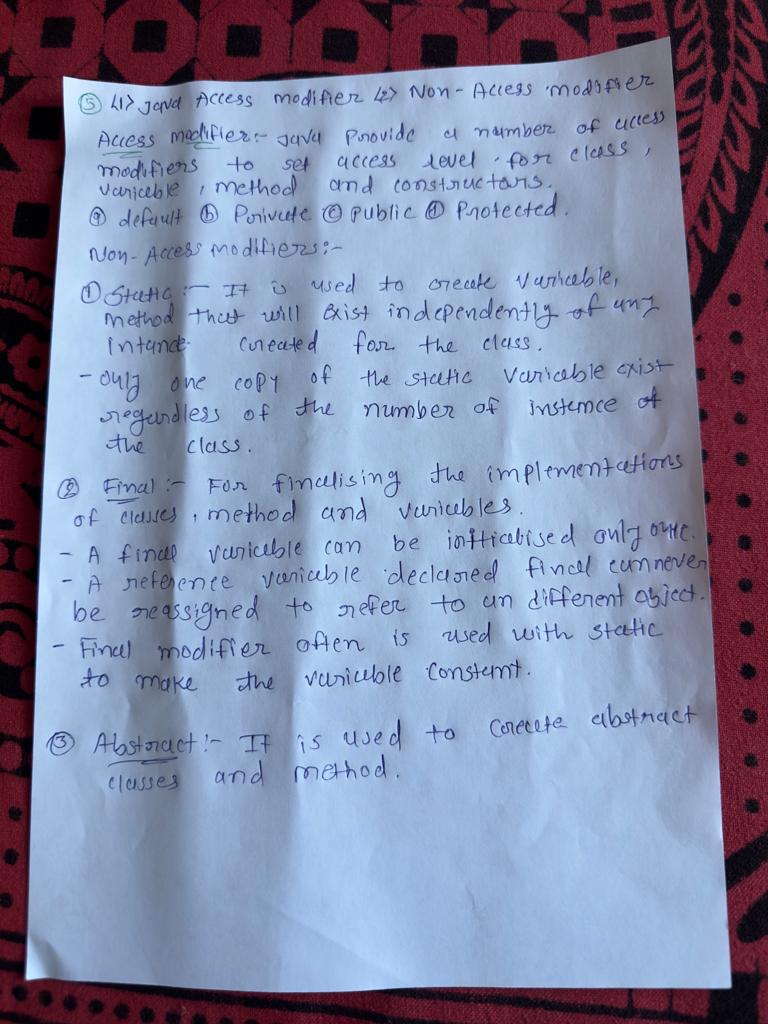 ⑤ <1> Java Access modifier <2> Non-Access modifier
Access modifier:- Java Provide a number of access
modifiers to set access level for class,
variable, method and constructors.
ⓐ default ⓑ Private ⓒ public ⓓ Protected.
Non-Access modifiers:-
① Static:- It is used to create variable,
method that will exist independently of any
intance created for the class.
- Only one copy of the static variable exist
regardless of the number of instance of
the class.
② Final:- For finalising the implementations
of classes, method and variables.
- A final variable can be initialised only once.
- A reference variable declared final can never
be reassigned to refer to an different object.
- Final modifier often is used with static
to make the variable constant.
③ Abstract:- It is used to create abstract
classes and method.